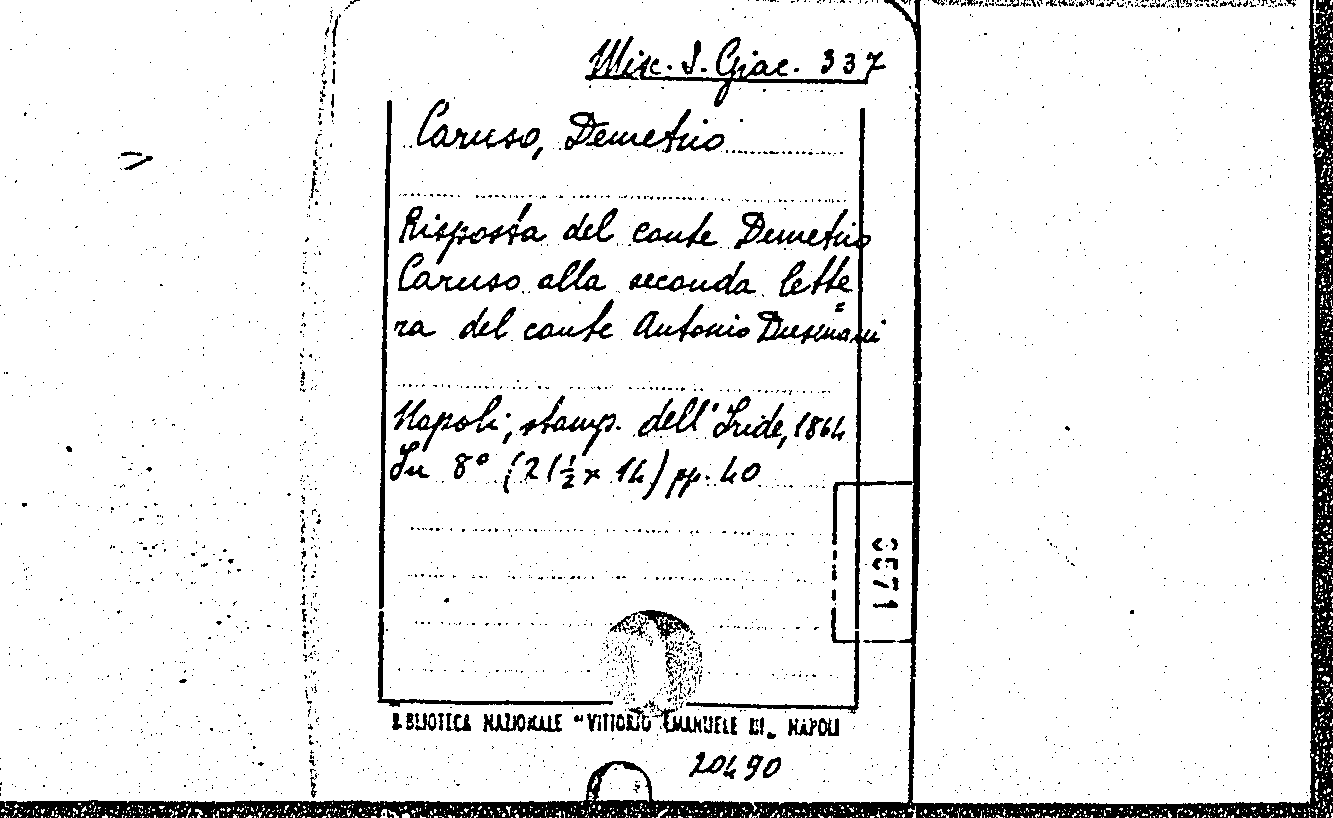 Misc. S. Giac. 337
Caruso, Demetrio
Risposta del conte Demetrio
Caruso alla seconda lette=
ra del conte Antonio Dusmani
Napoli, stamp. dell'Iride, 1864
In 8° (21½ x 14) pp. 40
6571
BIBLIOTECA NAZIONALE "VITTORIO EMANUELE III" NAPOLI
20490